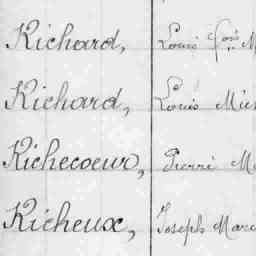 Richard, Louis fçois M
Richard, Louis Mich
Richecoeur, Pierre Ma
Richeux, Joseph Marc